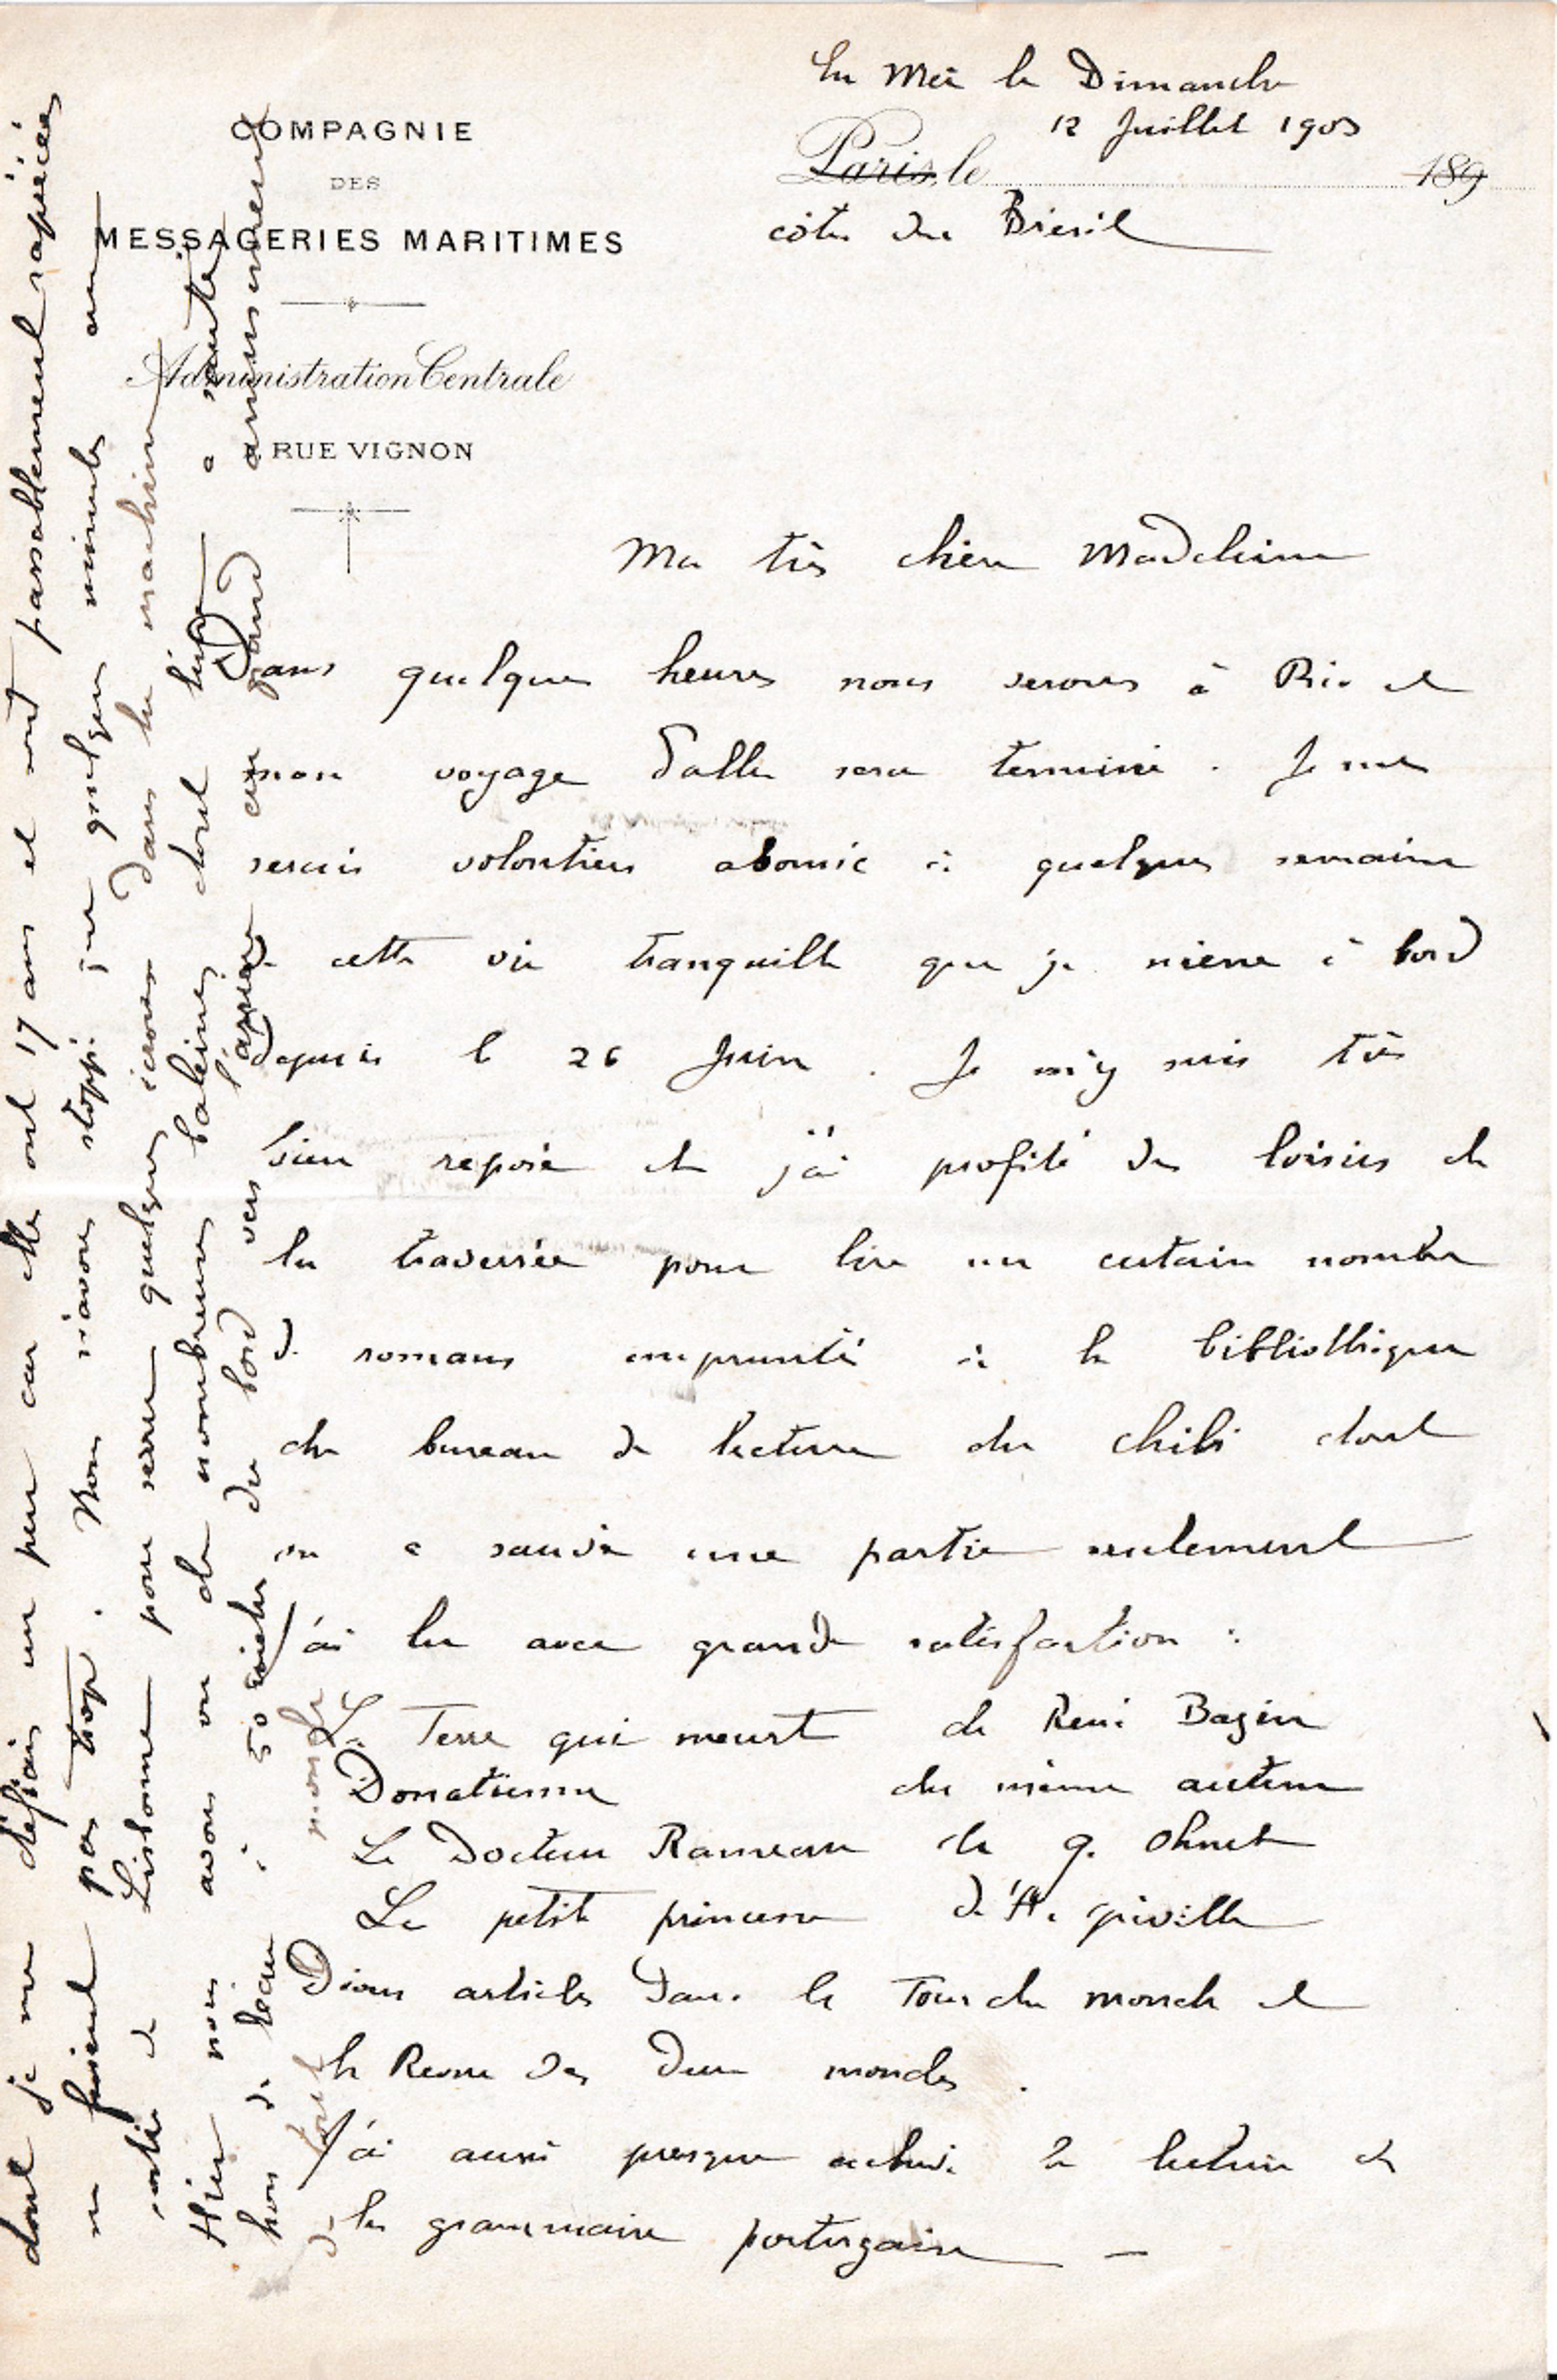 En Mer le Dimanche
12 Juillet 1903
COMPAGNIE
DES
MESSAGERIES MARITIMES
Paris, le 189
côtes du Brésil
Administration Centrale
RUE VIGNON
Ma très chère Madeleine
Dans quelques heures nous serons à Rio et
mon voyage d'aller sera terminé. Je me
serais volontiers abonné à quelques semaines
de cette vie tranquille que je mène à bord
depuis le 26 Juin. Je m'y suis très
bien reposé et j'ai profité des loisirs de
la traversée pour lire un certain nombre
de romans empruntés à la bibliothèque
du bureau de lecture du Chili dont
on a sauvé une partie seulement
J'ai lu avec grande satisfaction :
La Terre qui meurt de René Bazin
Donatienne du même auteur
Le Docteur Rameau de G. Ohnet
La petite princesse d'H. Gréville
Divers articles dans le Tour du monde et
la Revue des Deux mondes.
J'ai aussi presque achevé la lecture de
la grammaire portugaise —
dont je me défiais un peu car elles ont 17 ans et sont passablement rapiécées
ne fuient pas trop. Nous n'avons stoppé que quelques minutes en
sortie de Lisbonne pour serrer quelques écrous dans la machine
Hier nous avons vu de nombreuses baleines dont l'une a sauté
hors de l'eau à 50 mètres du bord vers l'arrière au grand amusement
de tout le monde